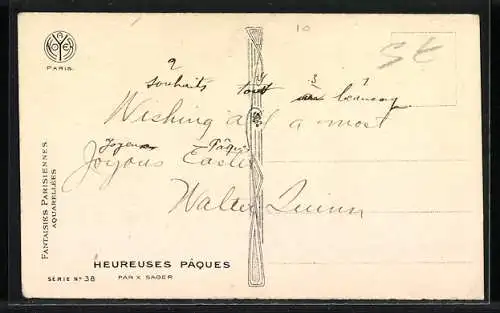 10
St
PARIS.
2 4 3 1
souhaits tout un beaucoup
Wishing all a most
Joyeux Pâques
Joyous Easter
Walter Quinn
FANTAISIES PARISIENNES
AQUARELLÉES
HEUREUSES PÂQUES
SÉRIE Nº 38 PAR X SAGER